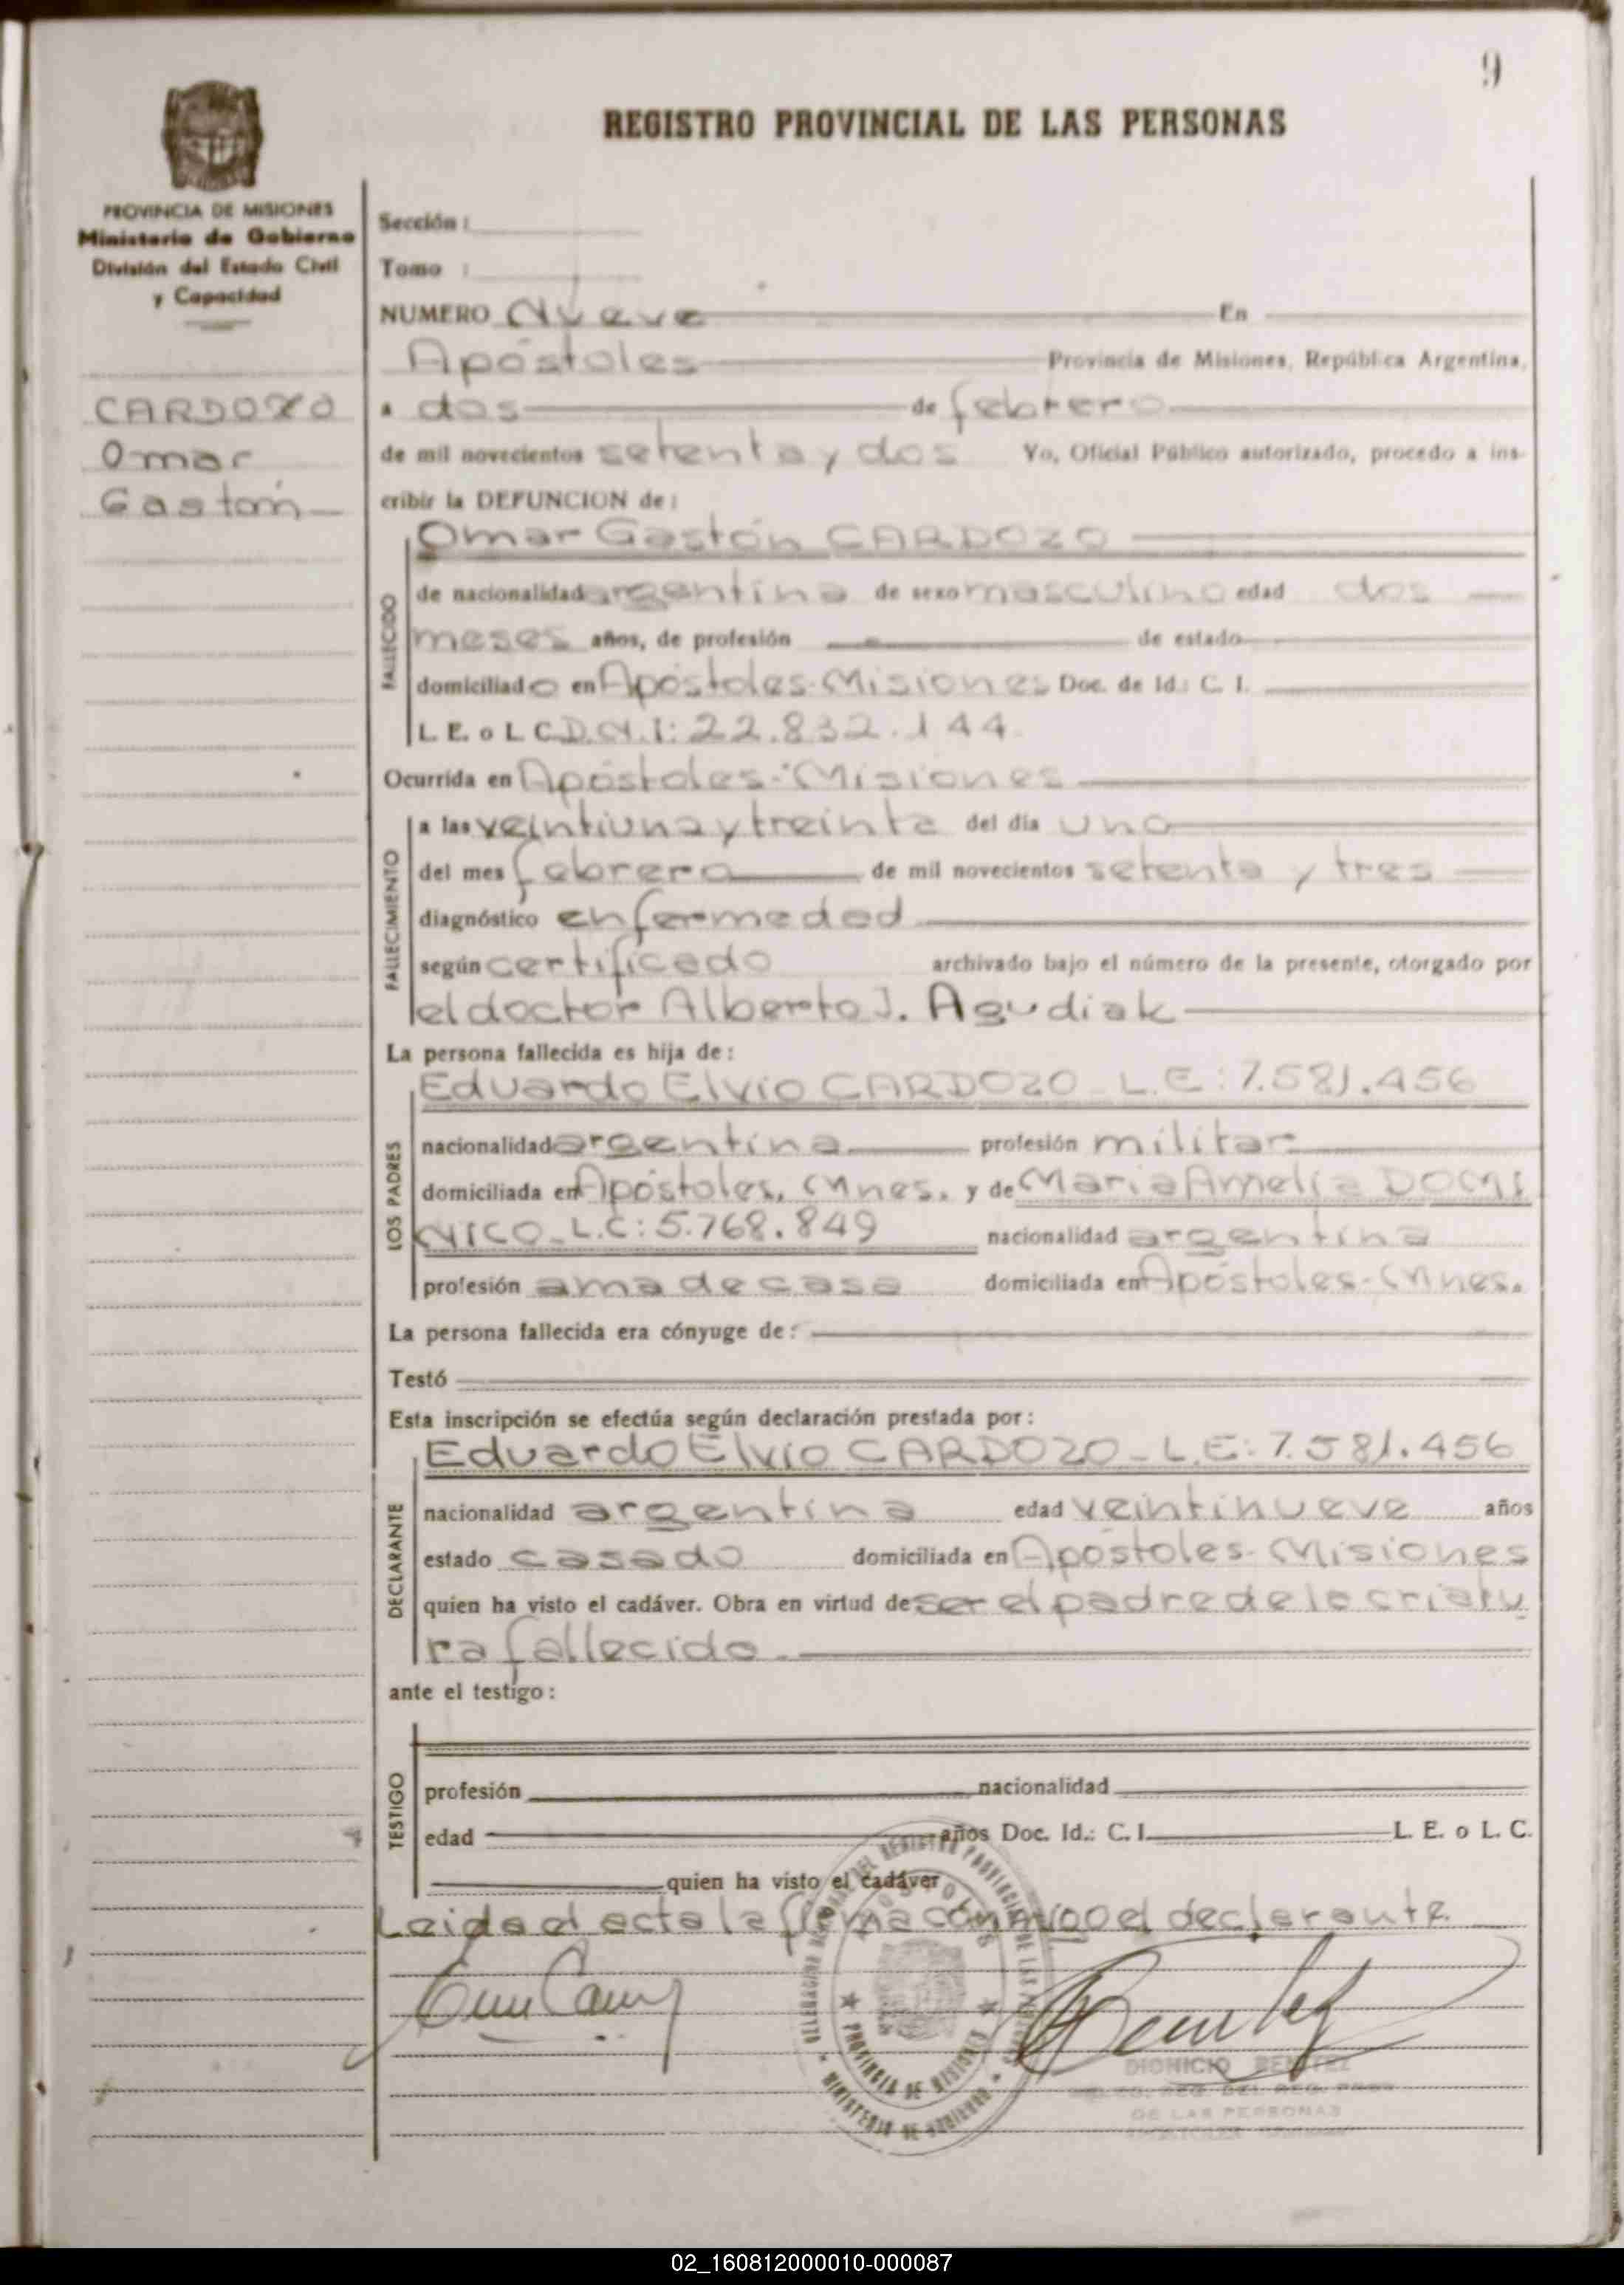 9
REGISTRO PROVINCIAL DE LAS PERSONAS
PROVINCIA DE MISIONES
Ministerio de Gobierno
División del Estado Civil
y Capacidad
CARDOZO
Omar
Gastón
Sección :
Tomo :
NUMERO Nueve En
Apóstoles Provincia de Misiones, República Argentina,
a dos de febrero
de mil novecientos setenta y dos Yo, Oficial Público autorizado, procedo a ins-
cribir la DEFUNCION de :
Omar Gastón CARDOZO
FALLECIDO
de nacionalidad argentina de sexo masculino edad dos
meses años, de profesión de estado
domiciliado en Apóstoles-Misiones Doc. de Id.: C. I.
L. E. o L C D.N.I: 22.832.144
Ocurrida en Apóstoles-Misiones
FALLECIMIENTO
a las veintiuna y treinta del día uno
del mes febrero de mil novecientos setenta y tres
diagnóstico enfermedad
según certificado archivado bajo el número de la presente, otorgado por
el doctor Alberto J. Agudiak
La persona fallecida es hija de :
LOS PADRES
Eduardo Elvio CARDOZO - L.E: 7.581.456
nacionalidad argentina profesión militar
domiciliada en Apóstoles, Mnes. y de María Amelia DOMI
NICO - L.C: 5.768.849 nacionalidad argentina
profesión ama de casa domiciliada en Apóstoles-Mnes.
La persona fallecida era cónyuge de :
Testó
Esta inscripción se efectúa según declaración prestada por :
DECLARANTE
Eduardo Elvio CARDOZO - L.E: 7.581.456
nacionalidad argentina edad veintinueve años
estado casado domiciliada en Apóstoles-Misiones
quien ha visto el cadáver. Obra en virtud de ser el padre de la criatu
ra fallecido.
ante el testigo :
TESTIGO
profesión nacionalidad
edad años Doc. Id.: C. I. L. E. o L. C.
quien ha visto el cadáver
Leida el acta la firma conmigo el declarante
DELEGACION DEL REGISTRO PROVINCIAL DE LAS PERSONAS
APOSTOLES
PROVINCIA DE MISIONES
MINISTERIO DE GOBIERNO
DIONICIO BENITEZ
DE LAS PERSONAS
02_160812000010-000087